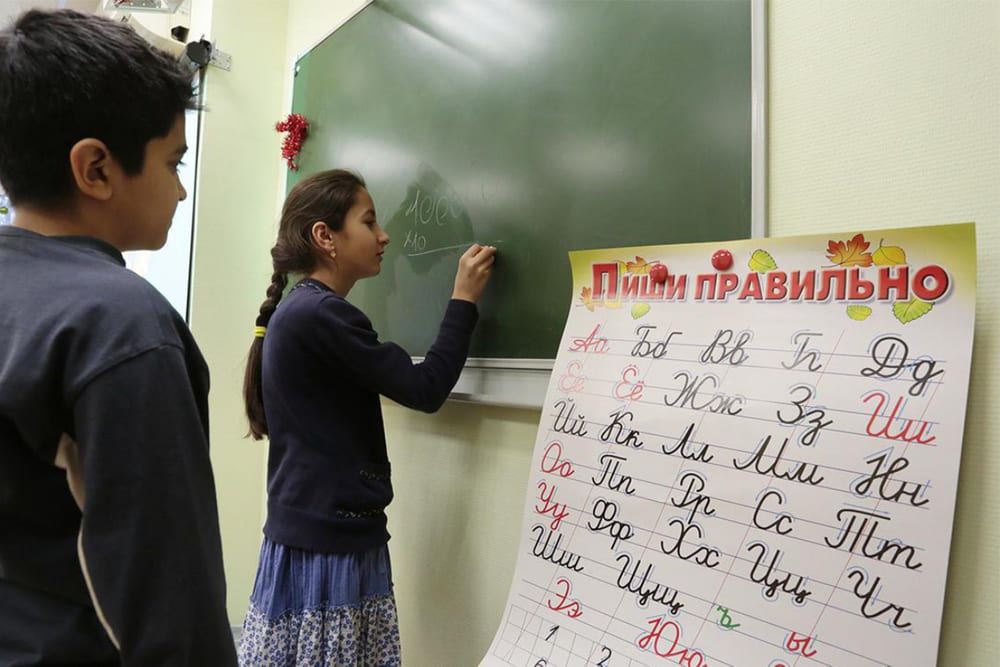 x10
Пиши правильно
Аа Бб Вв Гг Дд
Ее Ёё Жж Зз Ии
Йй Кк Лл Мм Нн
Оо Пп Рр Сс Тт
Уу Фф Хх Цц Чч
Шш Щщ ъ ы
Ээ Юю
1 2